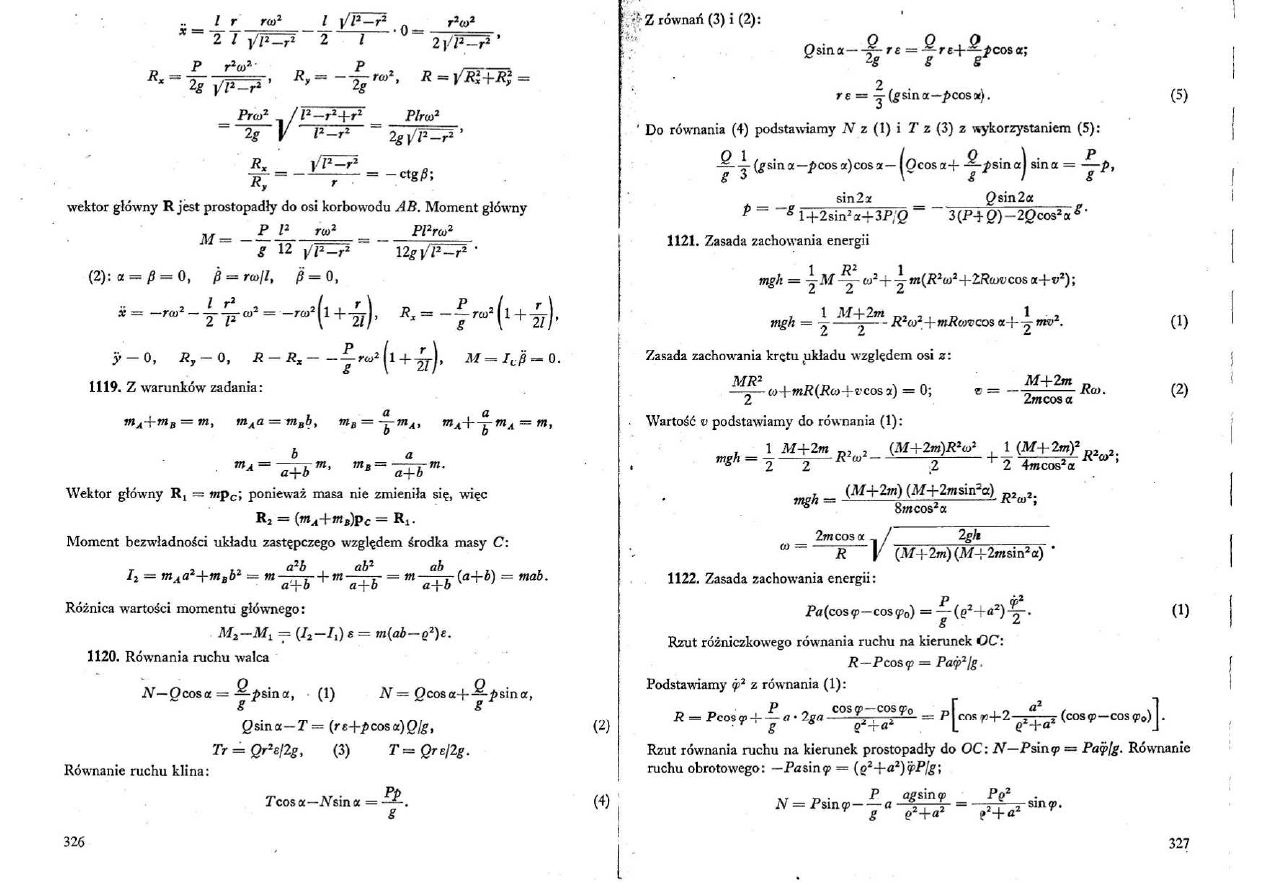 ẍ = l/2 · r/l · rω²/√(l²−r²) − l/2 · √(l²−r²)/l · 0 = r²ω²/(2√(l²−r²)),
Rₓ = P/2g · r²ω²/√(l²−r²), R_y = −P/2g rω², R = √(Rₓ²+R_y²) =
= Prω²/2g √((l²−r²+r²)/(l²−r²)) = Plrω²/(2g√(l²−r²)),
Rₓ/R_y = −√(l²−r²)/r = −ctgβ;
wektor główny R jest prostopadły do osi korbowodu AB. Moment główny
M = −P/g · l²/12 · rω²/√(l²−r²) = −Pl²rω²/(12g√(l²−r²)).
(2): α = β = 0, β̇ = rω/l, β̈ = 0,
ẍ = −rω² − l/2 · r²/l² ω² = −rω²(1 + r/2l), Rₓ = −P/g rω²(1 + r/2l),
ÿ − 0, R_y − 0, R − Rₓ − −P/g rω²(1 + r/2l), M = I_cβ̈ − 0.
1119. Z warunków zadania:
m_A+m_B = m, m_A a = m_B b, m_B = a/b m_A, m_A + a/b m_A = m,
m_A = b/(a+b) m, m_B = a/(a+b) m.
Wektor główny R₁ = mp_C; ponieważ masa nie zmieniła się, więc
R₂ = (m_A+m_B)p_C = R₁.
Moment bezwładności układu zastępczego względem środka masy C:
I₂ = m_A a²+m_B b² = m a²b/(a+b) + m ab²/(a+b) = m ab/(a+b) (a+b) = mab.
Różnica wartości momentu głównego:
M₂−M₁ = (I₂−I₁) ε = m(ab−ϱ²)ε.
1120. Równania ruchu walca
N−Qcos α = Q/g p sin α, (1) N = Qcos α + Q/g p sin α,
Qsin α−T = (rε+p cos α)Q/g, (2)
Tr = Qr²ε/2g, (3) T = Qrε/2g.
Równanie ruchu klina:
Tcos α−Nsin α = Pp/g. (4)
326
Z równań (3) i (2):
Qsin α − Q/2g rε = Q/g rε + Q/g p cos α;
rε = 2/3 (g sin α−p cos α). (5)
Do równania (4) podstawiamy N z (1) i T z (3) z wykorzystaniem (5):
Q/g · 1/3 (g sin α−p cos α)cos α − (Qcos α + Q/g p sin α) sin α = P/g p,
p = −g sin2α/(1+2sin²α+3P/Q) = −Qsin2α/(3(P+Q)−2Qcos²α) g.
1121. Zasada zachowania energii
mgh = 1/2 M R²/2 ω² + 1/2 m(R²ω²+2Rωv cos α+v²);
mgh = 1/2 · (M+2m)/2 R²ω²+mRωv cos α + 1/2 mv². (1)
Zasada zachowania krętu układu względem osi z:
MR²/2 ω+mR(Rω+v cos α) = 0; v = −(M+2m)/(2m cos α) Rω. (2)
Wartość v podstawiamy do równania (1):
mgh = 1/2 · (M+2m)/2 R²ω² − (M+2m)R²ω²/2 + 1/2 · (M+2m)²/(4m cos²α) R²ω²;
mgh = (M+2m) (M+2m sin²α)/(8m cos²α) R²ω²;
ω = 2m cos α/R √(2gh/((M+2m) (M+2m sin²α))).
1122. Zasada zachowania energii:
Pa(cos φ−cos φ₀) = P/g (ϱ²+a²) φ̇²/2. (1)
Rzut różniczkowego równania ruchu na kierunek OC:
R−P cos φ = Paφ̇²/g.
Podstawiamy φ̇² z równania (1):
R = Pcos φ + P/g a · 2ga (cos φ−cos φ₀)/(ϱ²+a²) = P[cos φ+2 a²/(ϱ²+a²) (cos φ−cos φ₀)].
Rzut równania ruchu na kierunek prostopadły do OC: N−P sin φ = Paφ̈/g. Równanie
ruchu obrotowego: −Pa sin φ = (ϱ²+a²)φ̈P/g;
N = P sin φ − P/g a · ag sin φ/(ϱ²+a²) = Pϱ²/(ϱ²+a²) sin φ.
327